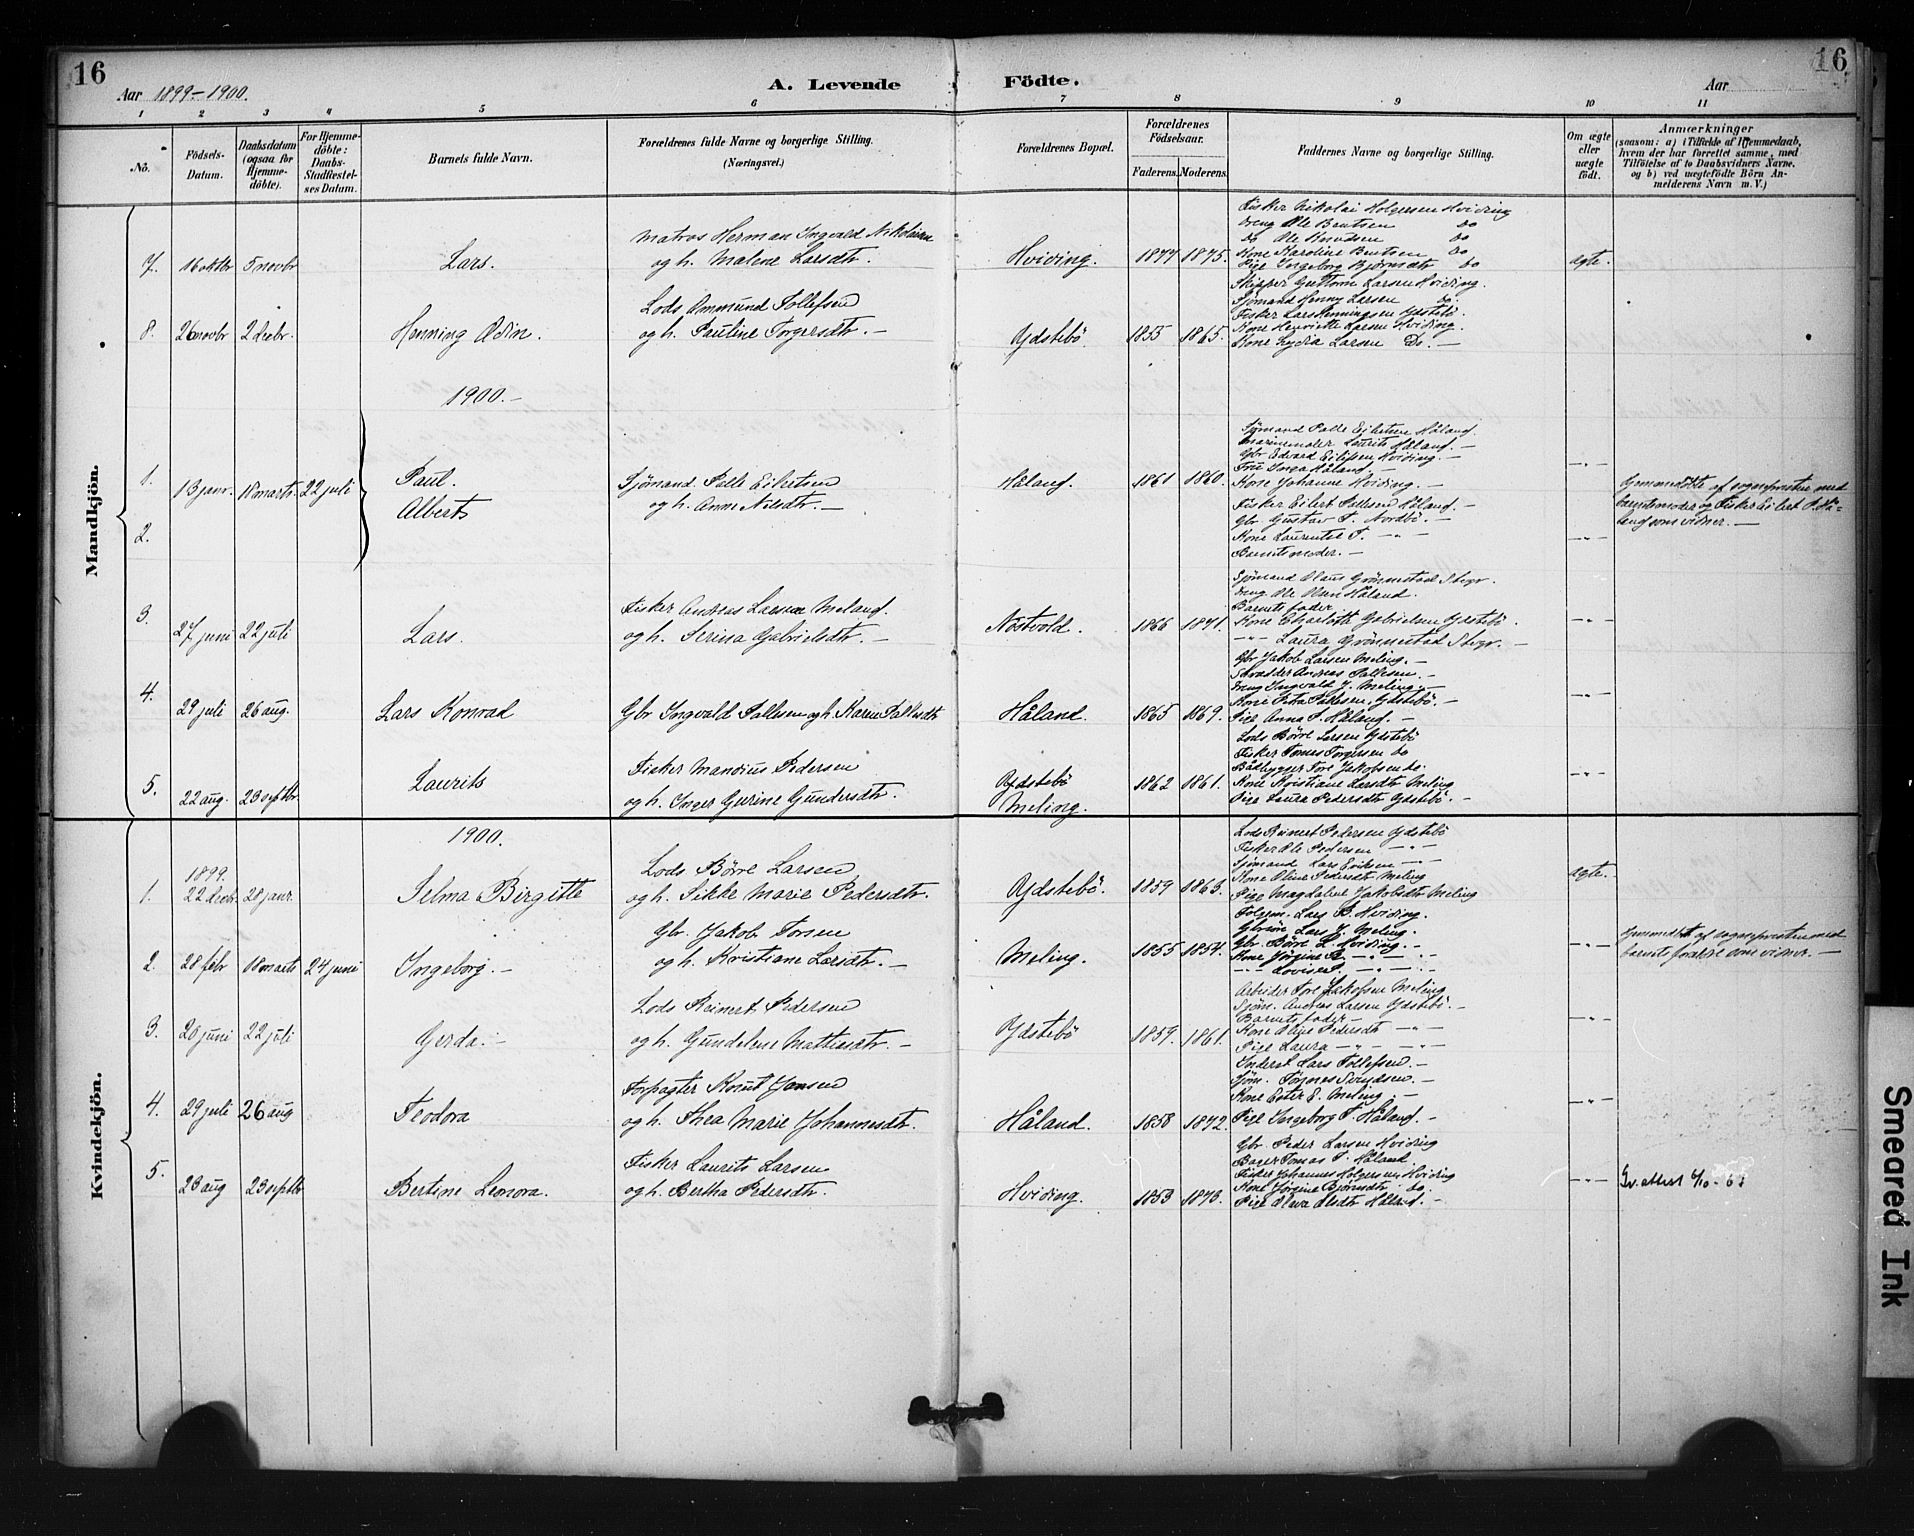 16
Aar 1899-1900.
A. Levende
Födte.
Aar
16
1 2 3 4 5 6 7 8 9 10 11
No.
Födsels-Datum.
Daabsdatum (ogsaa for Hjemme-döbte).
For Hjemme-döbte: Daabs-Stadfæstel-ses Datum.
Barnets fulde Navn.
Forældrenes fulde Navne og borgerlige Stilling.
(Næringsvei.)
Forældrenes Bopæl.
Forældrenes Födselsaar.
Faderens. Moderens.
Faddernes Navne og borgerlige Stilling.
Om ægte eller uægte födt.
Anmærkninger
(saasom: a) i Tilfælde af Hjemmedaab, hvem der har forrettet samme, med Tilföielse af to Daabsvidners Navne, og b) ved uægtefödte Börn An-melderens Navn m. V.)
Mandkjön.
7. 16 oktbr 5 novbr
Lars.
Matros Herman Ingvald Nikolaisen
og h. Malene Larsdtr.
Hviding. 1877 1875.
Fisker Nikolai Holgersen Hviding
Dreng Ole Bentsen do
do Ole Knudsen do
Kone Karoline Bentsen do
Pige Ingeborg Bjørnsdtr do
ægte.
8. 26 novbr 2 decbr.
Henning Odin.
Lods Ammund Tollefsen
og h. Pauline Torgersdtr. —
Ydstebö. 1855 1865.
Skipper Guttorm Larsen Hviding.
Sjömand Henny Larsen do.
Fisker Lars Henningsen Ydstebö.
Kone Henriette Larsen Hviding.
Kone Lydia Larsen Do. —
1900. —
1.
2.
13 janr. 18 marts. 22 juli
Paul.
Alberts
Sjömand Palle Eilertsen
og h. Anne Nilsdtr. —
Håland. 1861 1860.
Sjömand Palle Eilertsen Håland.
Marinemaler Laurits Håland. —
Gbr Edvard Eilifsen Hviding. —
Fru Inga Håland. —
Kone Johanne Hviding. —
Fisker Eilert Pallesen Håland. —
Gbr. Gustav T. Nordbö. —
Kone Laurentse T. —"—
Barnets moder. —
—"—
—"—
Hjemmedöbte af sognepresten med
barnets moder og Fisker Eilert P. Hå-
land som vidner. —
3. 27 juni 22 juli
Lars.
Fisker Andreas Larsen Meland.
og h. Serina Gabrielsdtr. —
Nöstvold. 1866 1871.
Sjömand Olaus Grönnestad
Dreng Ole Olsen Håland.
Barnets fader
Kone Charlotte Gabrielsen Ydstebö.
—"— Laura Grönnestad
—"—
4. 29 juli 26 aug.
Lars Konrad
Gbr Ingvald Pallesen og h. Karen Pallesdtr
Håland. 1865 1869.
Gbr Jakob Larsen Meling. —
Skrædder Andreas Pallesen. —
Dreng Ingvald J. Meling. —
Kone Petra Pallesen, Ydstebö. —
Pige Anna P. Håland. —
—"—
5. 22 aug. 23 septbr
Laurits
Fisker Mandius Pedersen
og h. Inger Gurine Gundersdtr.
Ydstebö
Meling. 1862 1861.
Lods Börre Larsen Ydstebö
Fisker Tomas Torgersen do
Bådbygger Tore Jakobsen do.
Kone Kristiane Larsdtr Meling
Pige Laura Pedersdtr Ydstebö. —
—"—
Kvindekjön.
1900.
1. 1899.
22 decbr. 28 janr.
Selma Birgitte
Lods Börre Larsen
og h. Sikke Marie Pedersdtr.
Ydstebö. 1859 1863.
Lods Reinert Pedersen Ydstebö
Fisker Ole Pedersen —"—
Sjömand Lars Eriksen —"—
Kone Oline Pedersdtr Meling
Pige Magdalene Jakobsdtr Meling
ægte.
2. 28 febr 18 marts 24 juni
Ingeborg. —
Gbr. Jakob Torsen
og h. Kristiane Larsdtr. —
Meling. 1855 1854.
Lars B. Hviding.
Lars J. Meling.
Gbr. Börre L. Hviding. —
Kone Jörgine —"—
—"— Lovise —"—
—"—
Hjemmedöbt af sognepresten med
barnets forældre som vidner. —
3. 20 juni 22 juli
Gerda. —
Lods Reinert Pedersen
og h. Gundelene Mattisdtr. —
Ydstebö 1859. 1861.
Arbeider Tore Jakobsen Meling
Sjöm. Andreas Larsen Ydstebö. —
Barnets fader —
Kone Oline Pedersdtr —"—
Pige Laura —"— —"—
—"—
4. 29 juli 26 aug
Teodora
Forpagter Knut Jansen
og h. Thea Marie Johannesdtr.
Håland. 1858 1872.
Inderst Lars Tollefsen. —
Sjöm. Tönnes Svendsen. —
Kone Ester E. Meling. —
Pige Ingeborg T. Håland. —
—"—
5. 28 aug 23 septbr
Bertine Leonora.
Fisker Laurits Larsen
og h. Bertha Pedersdtr.
Hviding. 1853 1873.
Gbr. Peder Larsen Hviding
Bager Tomas T. Håland
Fisker Johannes Holgersen Hviding
Kone Jörgine Bjørnsdtr do
Pige Olava Olsdtr Håland. —
—"—
Gv. attest 6/10-65
Smeared Ink